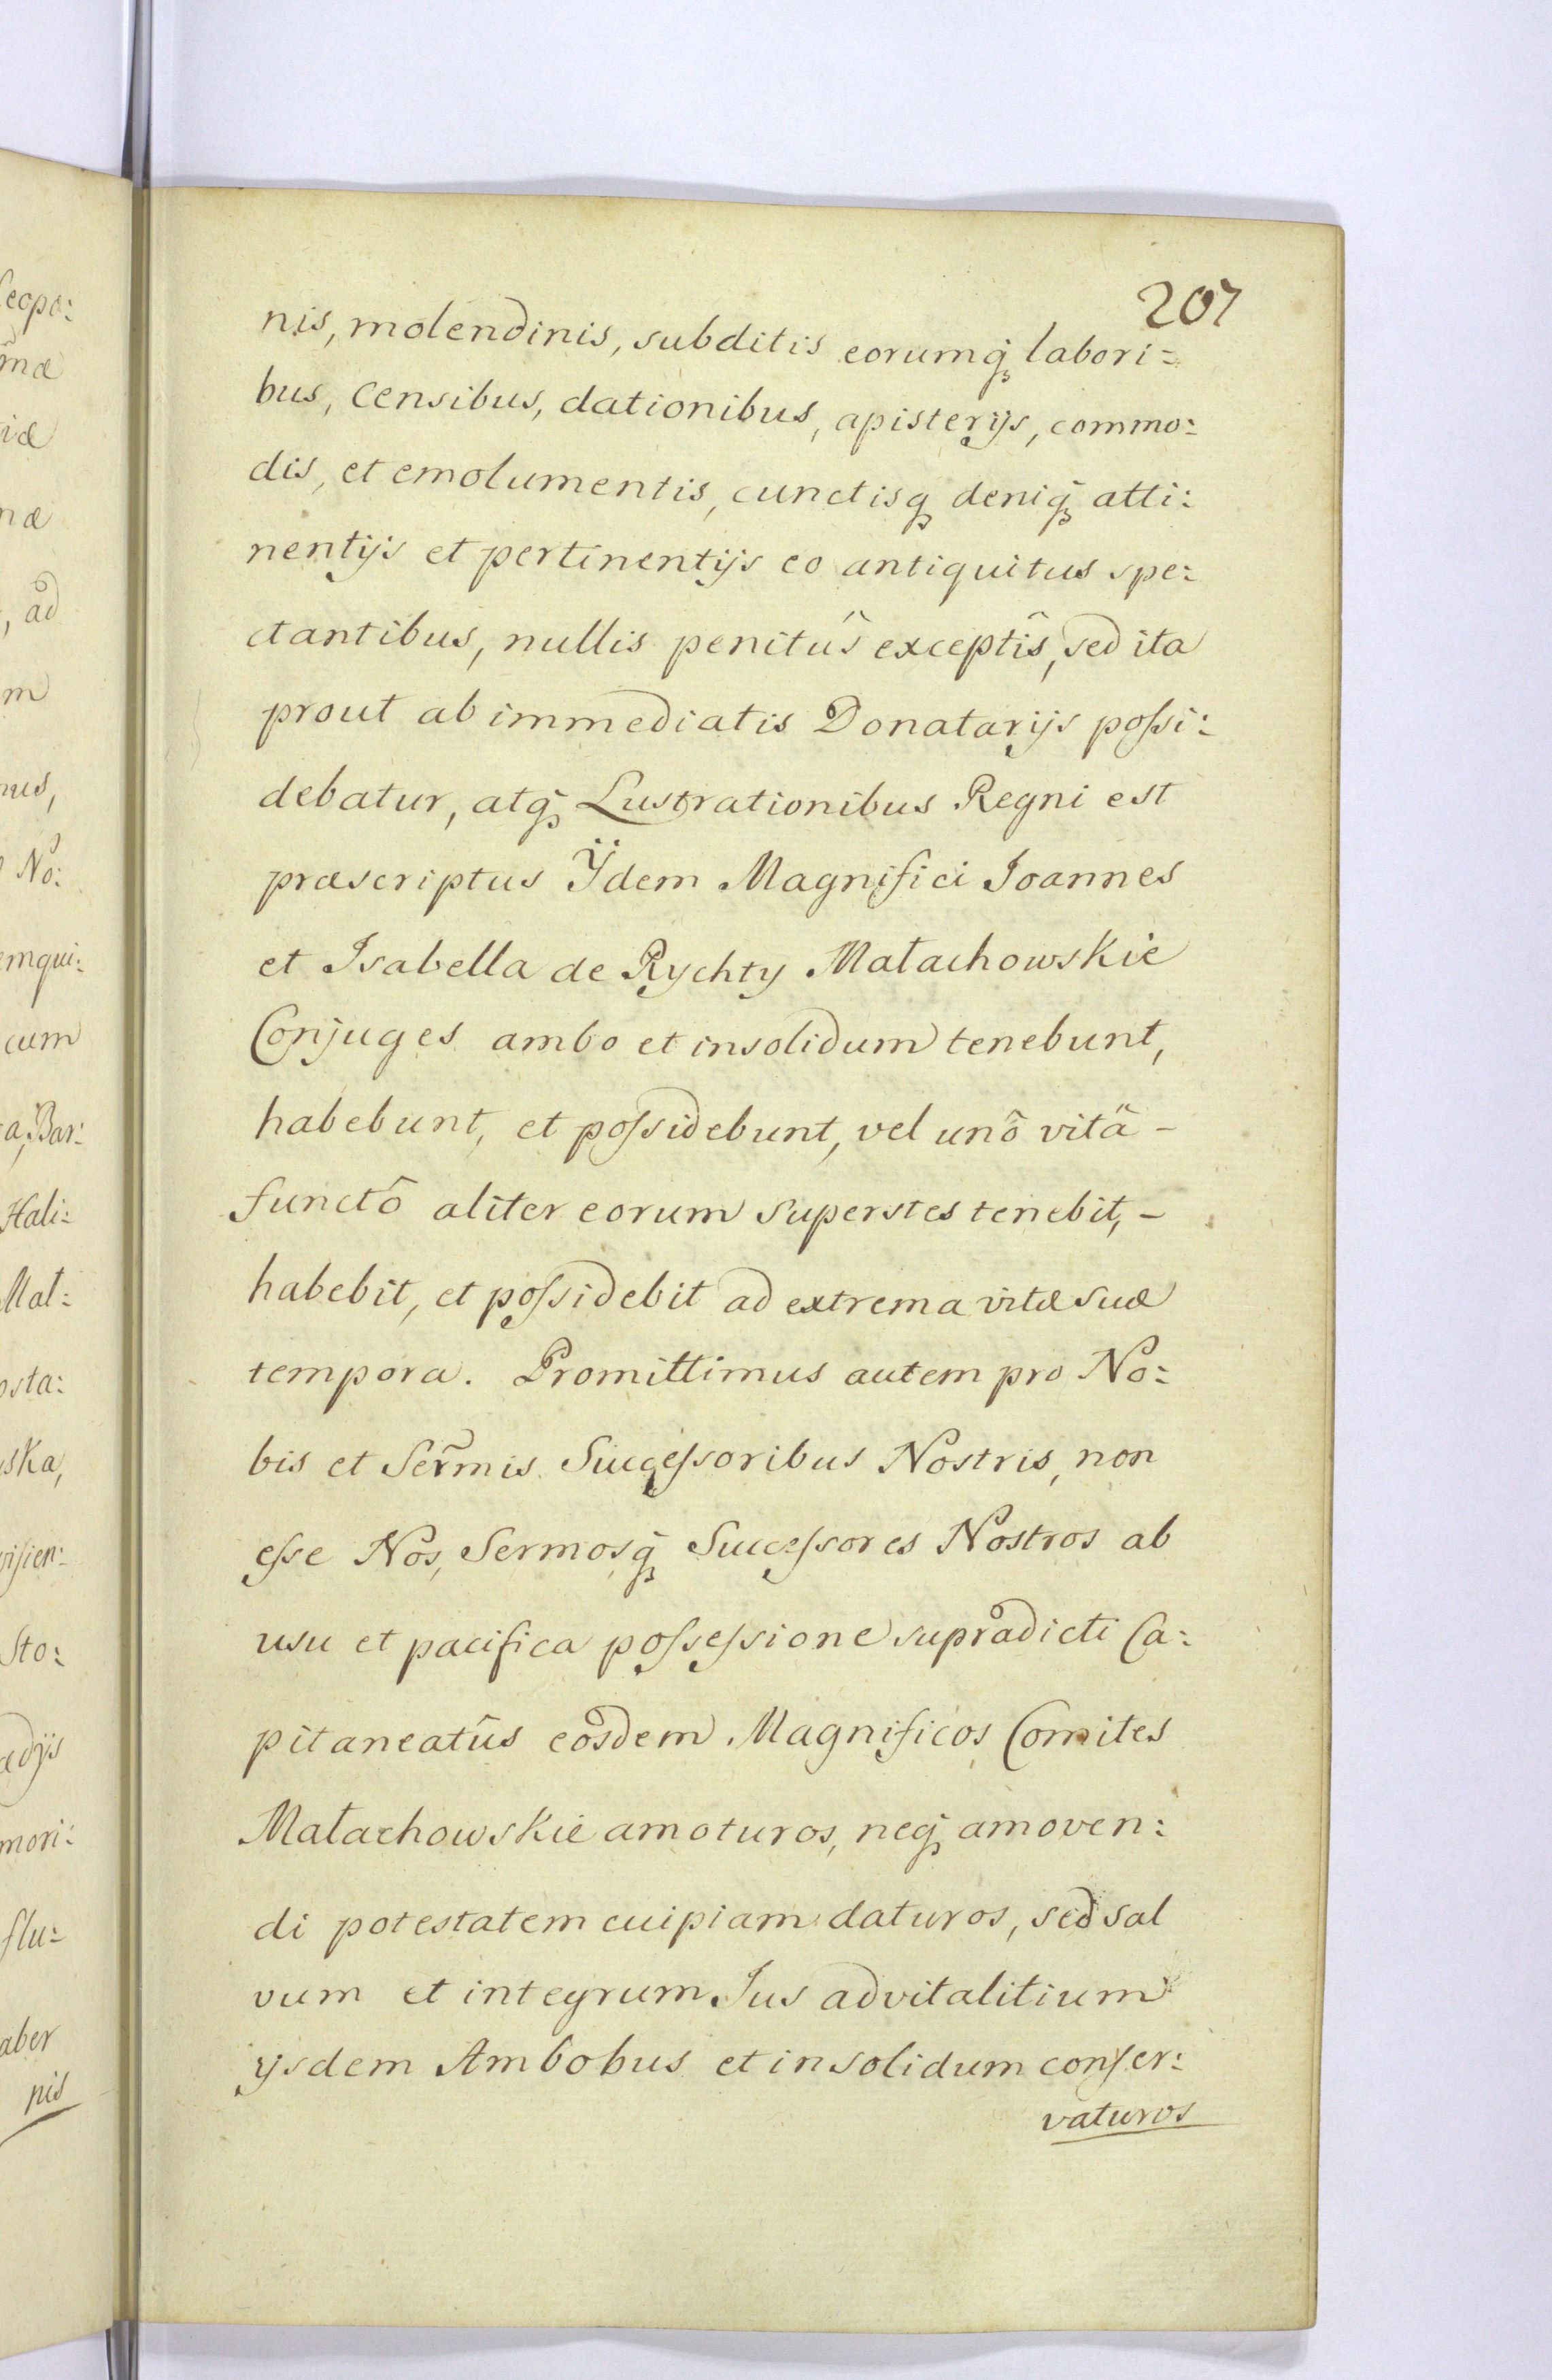 207
nis, molendinis, subditis eorumq́ꝫ labori=
bus, censibus, dationibus, apisterijs, commo:
dis, et emolumentis, cunctisqꝫ deniq́ꝫ atti:
nentijs et pertinentijs eo antiquitus spe:
ctantibus, nullis penitûs exceptîs, sed ita
prout ab immediatis Donatarijs poſsi:
debatur, atq́ꝫ Lustrationibus Regni est
præscriptus Ÿdem Magnifici Joannes
et Isabella de Rychty Małachowskie
Conjuges ambo et insolidum tenebunt,
habebunt, et poſsidebunt, vel unô vitâ -
functô aliter eorum superstes tenebit, -
habebit, et poſsidebit ad extrema vitæ suæ
tempora. Promittimus autem pro No:
bis et Ser̃mis Succeſsoribus Nostris, non
eſse Nos, Sermosq́ꝫ Succeſsores Nostros ab
usu et pacifica poſseſsione supradicti Ca:
pitaneatûs eosdem Magnificos Comites
Małachowskie amoturos, neq́ꝫ amoven:
di potestatem cuipiam daturos, sed sal
vum et integrum Jus advitalitium
ijsdem Ambobus et insolidum conser:
vaturos